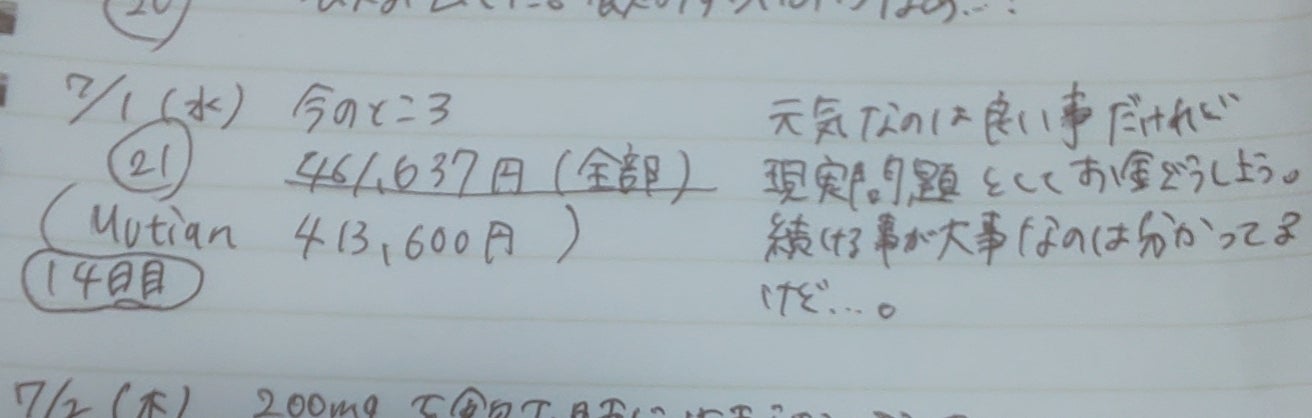 7/1(水) 今のところ 元気なのは良い事だけれど
21 461,637円(全部) 現実問題としてお金どうしよう。
(Mutian 413,600円) 続ける事が大事なのは分かってる
14日目 けど…。
7/2(木) 200mg